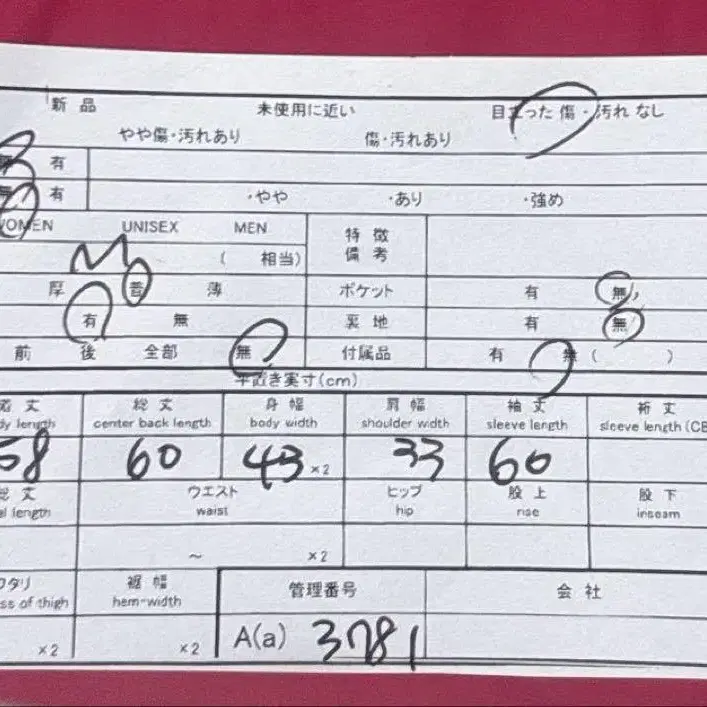 新品 未使用に近い 目立った傷・汚れなし
やや傷・汚れあり 傷・汚れあり
有
有 ・やや ・あり ・強め
WOMEN UNISEX MEN 特徴
M ( 相当) 備考
厚 普 薄 ポケット 有 無
有 無 裏地 有 無
前 後 全部 無 付属品 有 無 ( )
平置き実寸(cm)
着丈 総丈 身幅 肩幅 袖丈 裄丈
dy length center back length body width shoulder width sleeve length sleeve length (CB
58 60 43 ×2 33 60
総丈 ウエスト ヒップ 股上 股下
al length waist hip rise inseam
~ ×2
ワタリ 裾幅 管理番号 会社
ss of thigh hem-width
×2 ×2 A(a) 3781